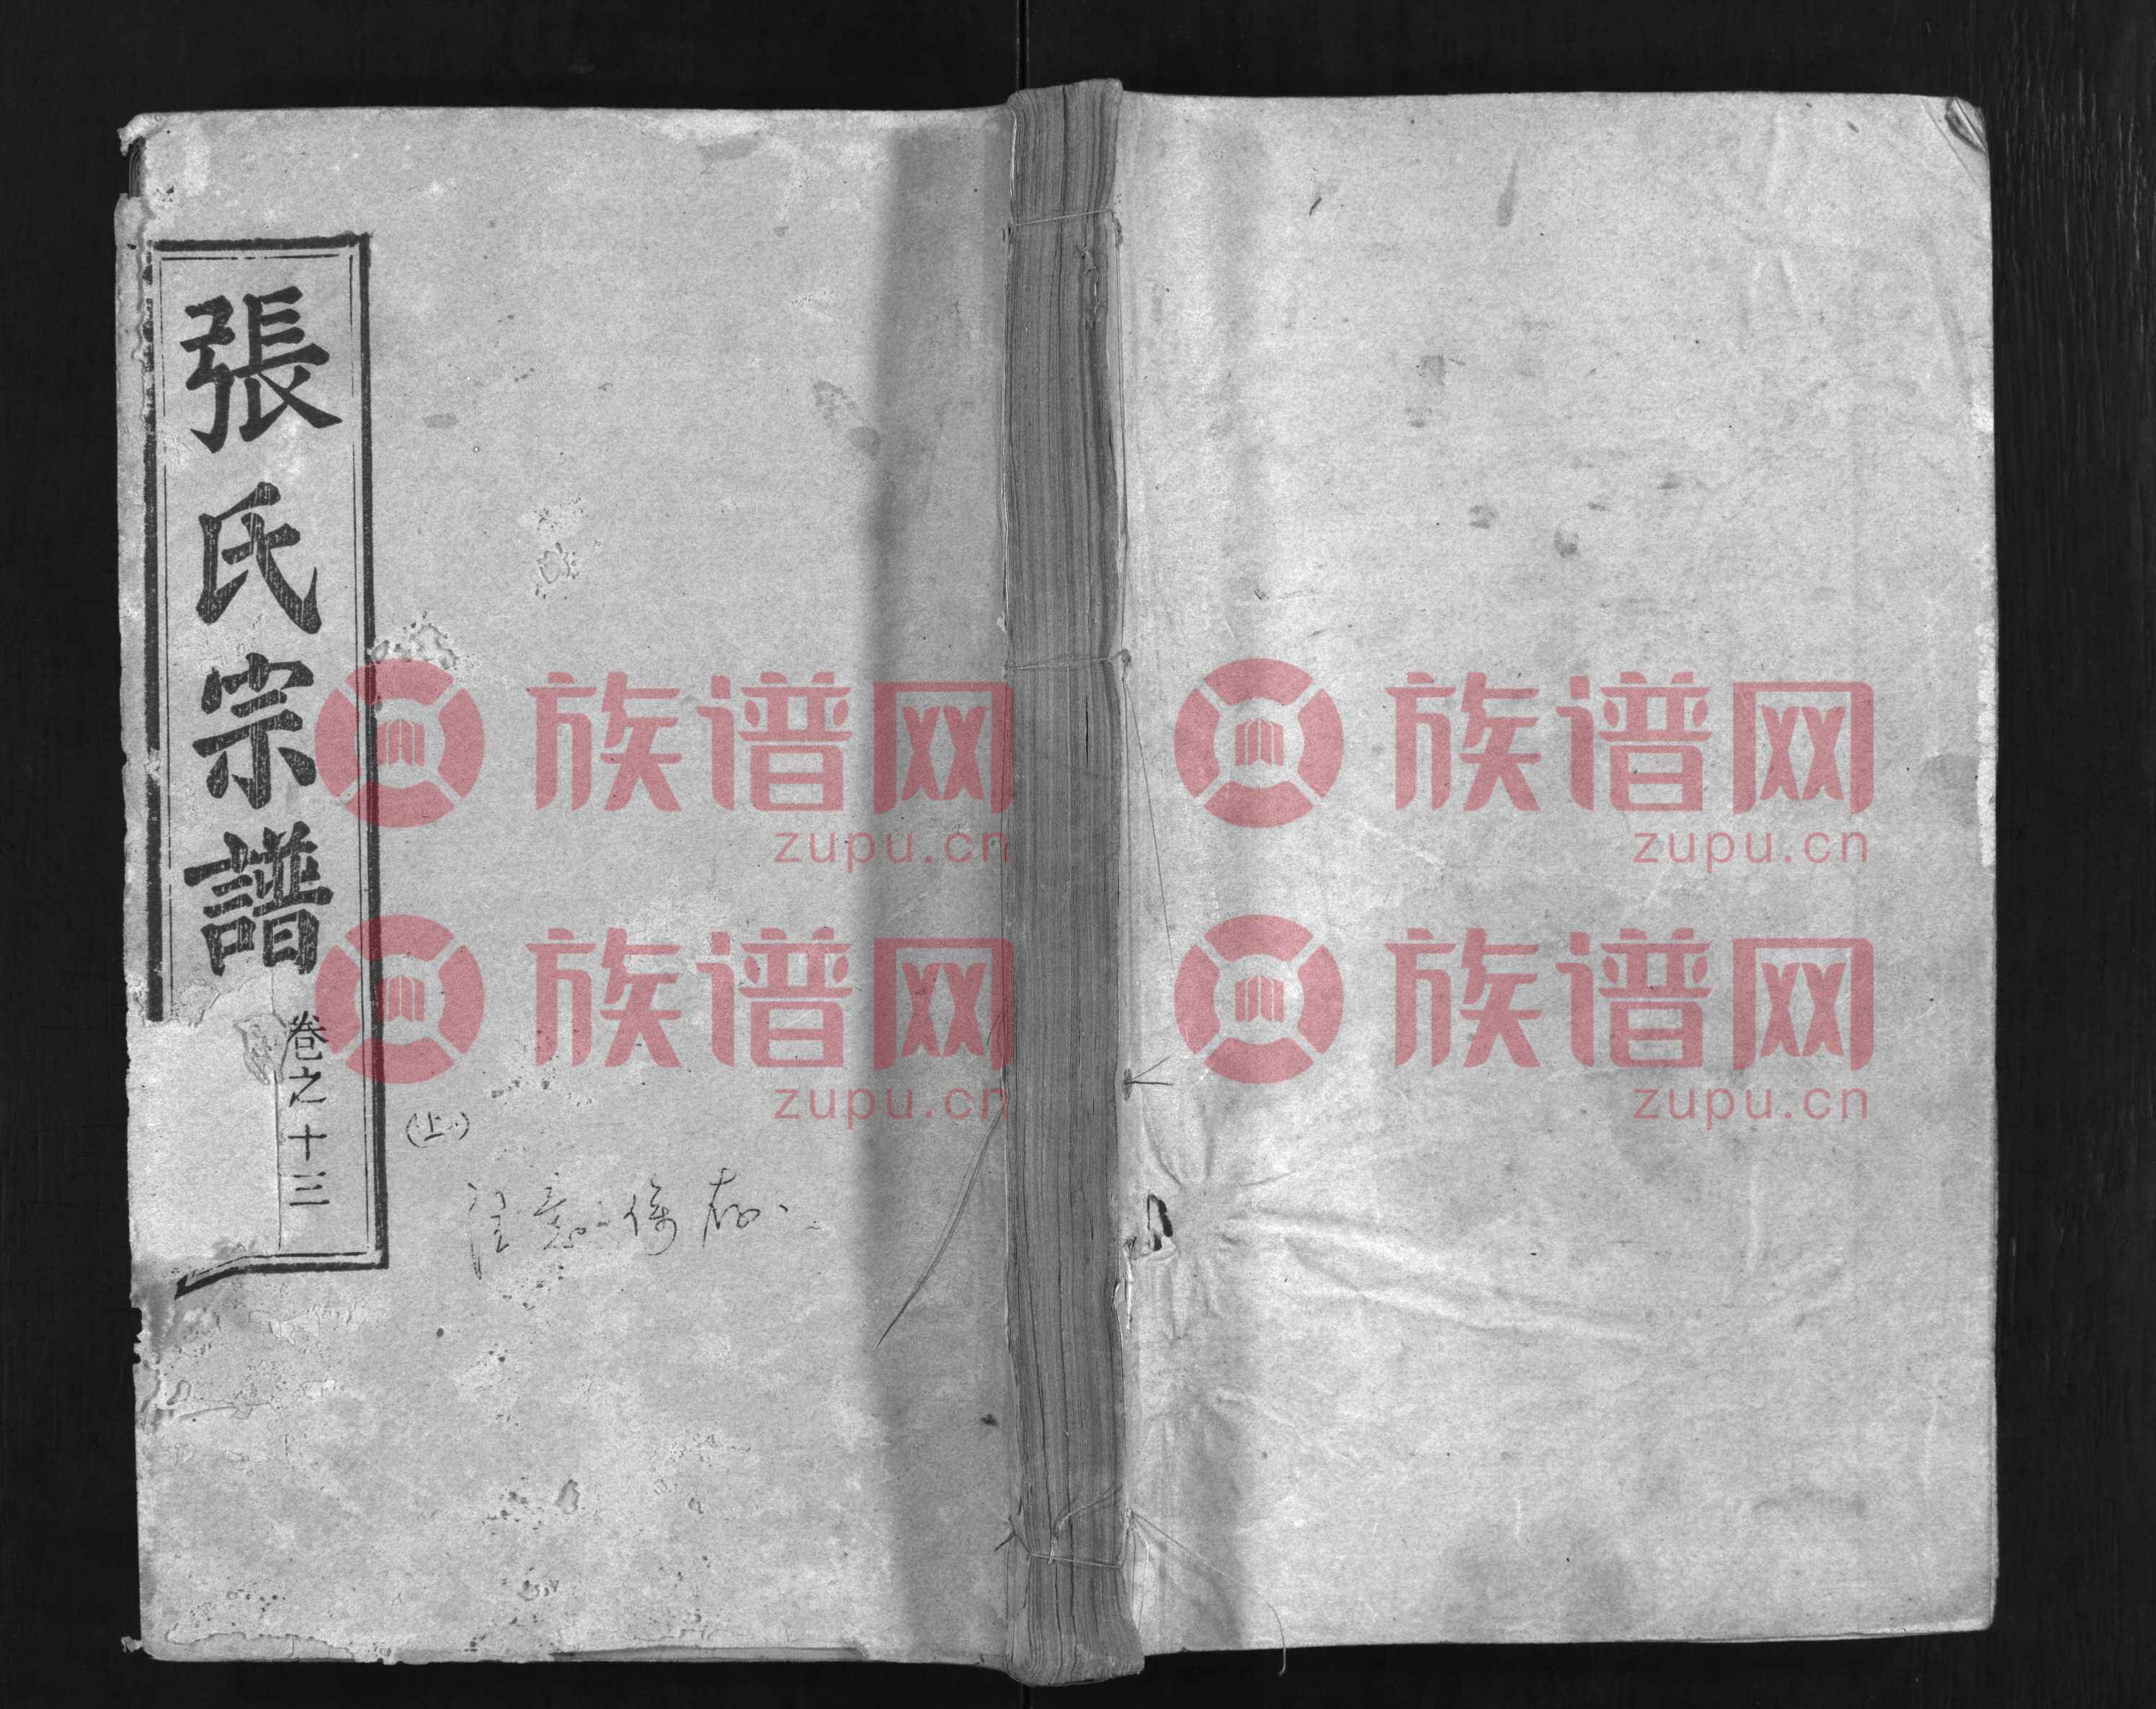 張氏宗譜
卷之十三
(上)
族谱网
zupu.cn
族谱网
zupu.cn
族谱网
zupu.cn
族谱网
zupu.cn